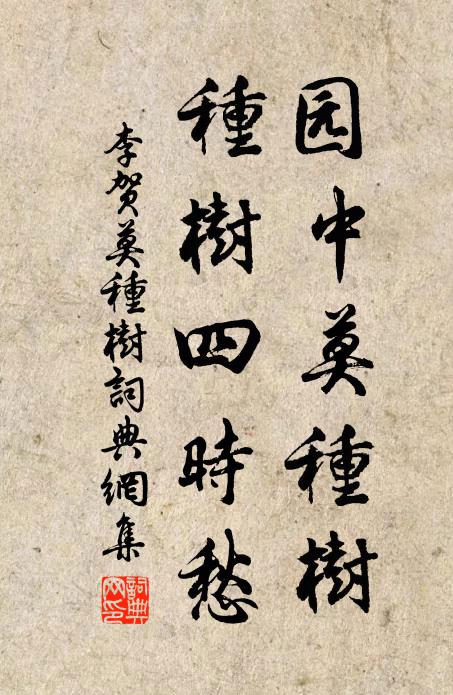 园中莫種樹
種樹四時愁
李贺莫種樹詞典網集
詞典网印